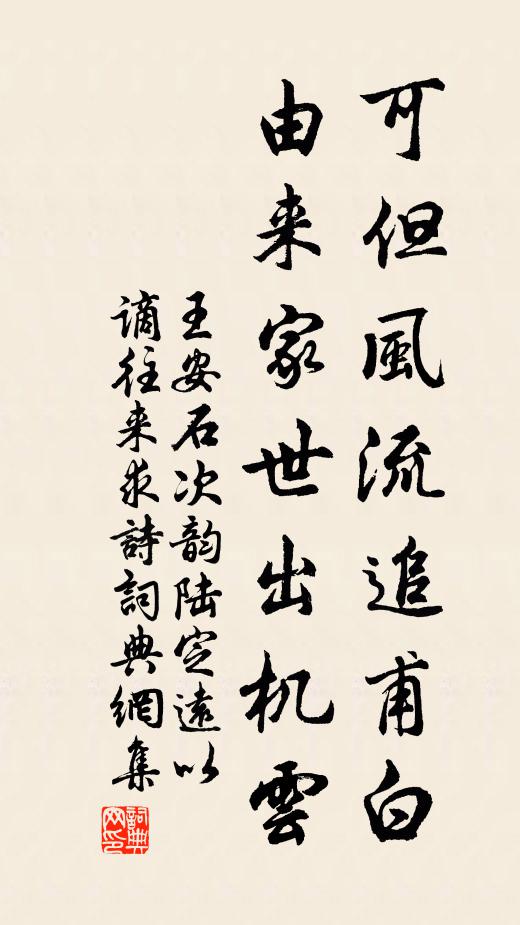 可但風流追甫白
由来家世出机雲
王安石次韵陆定遠以
谪往来求詩詞典網集
詞典网印